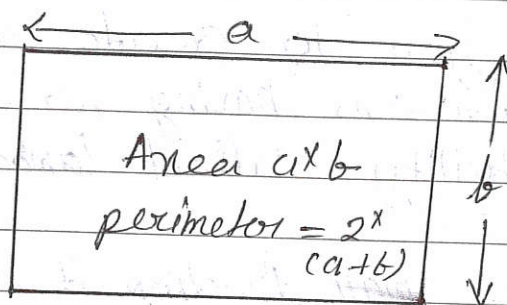 a
Area a×b
b
perimetor = 2×
(a+b)